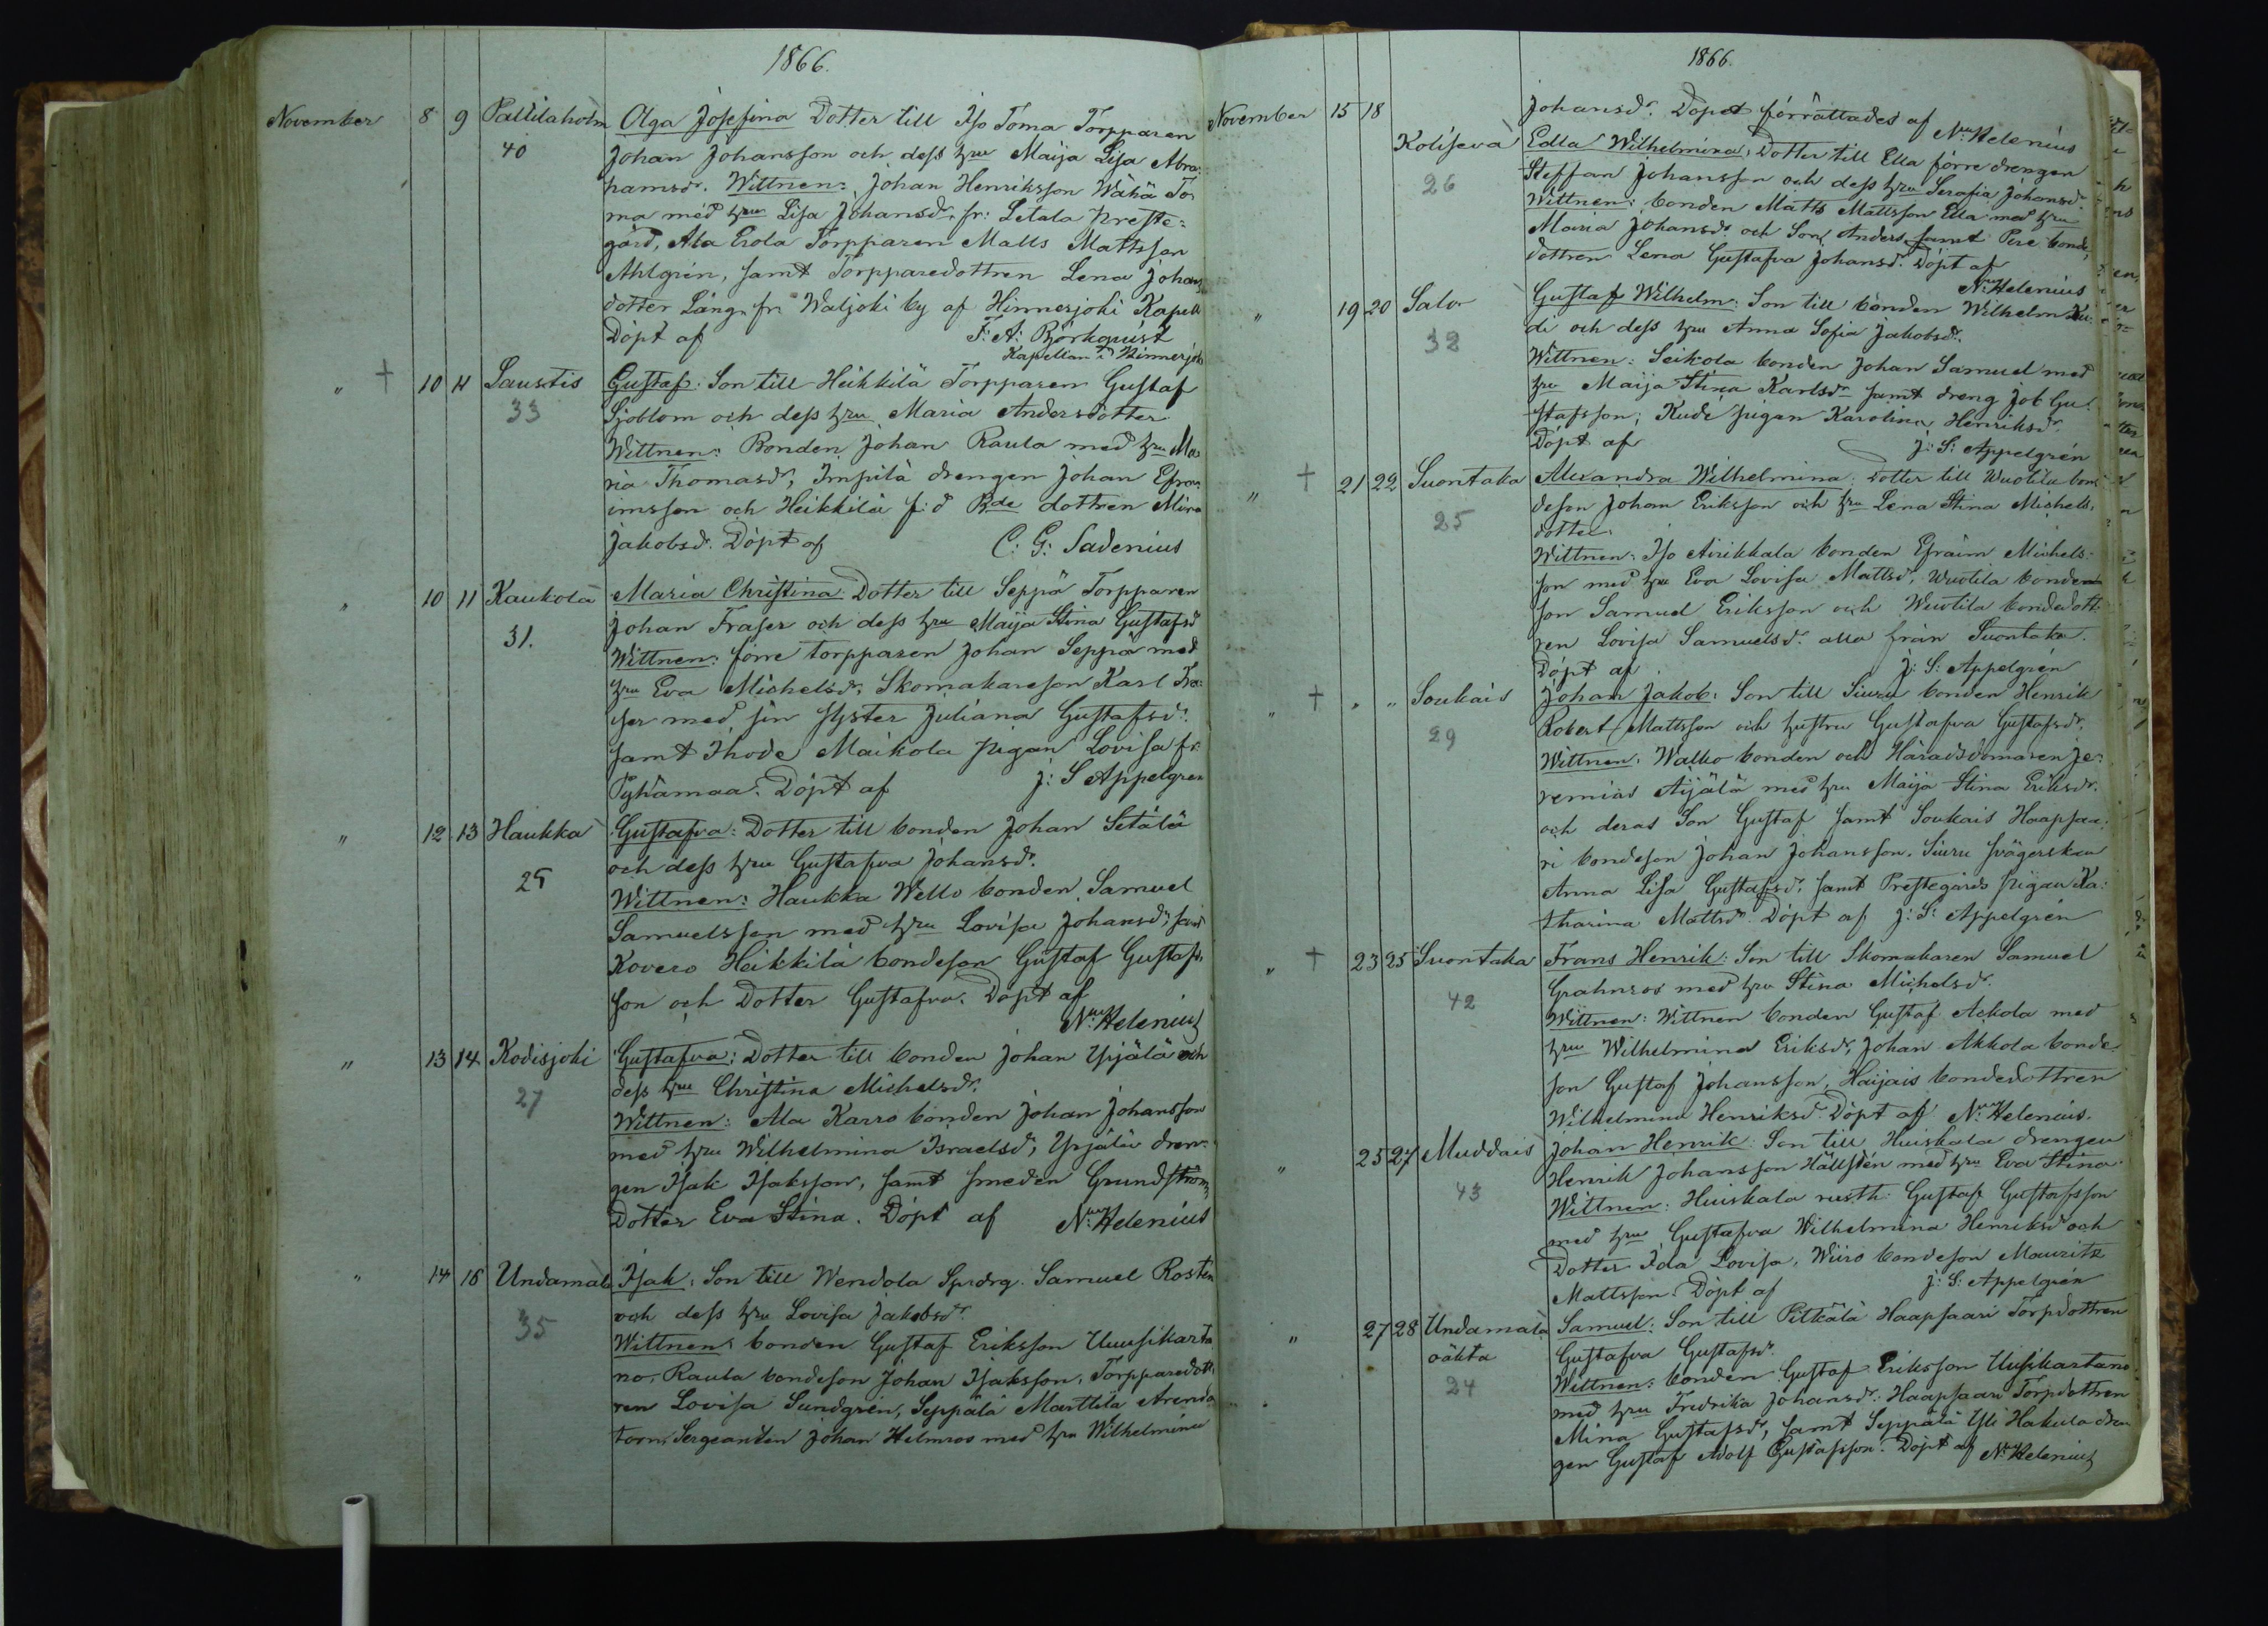 1866.
November 8 9 Pallilaholm Olga Josefina Dotter till Iso Toma Torpparen
40 Johan Johansson och dess hru Maija Lisa Abra-
hamsdr. Wittnen: Johan Henriksson Wähä To
ma med hru Lisa Johansdr. fr: Letala Preste-
gård, Ala Erola Torpparen Matts Mattsson
Ahlgrén, samt Torpparedottren Lena Johans
dotter Lång fr. Waljoki by af Hinnerjoki Kapell
Döpt af F: A: Björkqvist
Kapellan i Hinnerjoki
" † 10 11 Laustis Gustaf: Son till Heikkilä Torpparen Gustaf
33 Sjöblom och dess hru Maria Andersdotter
Wittnen: Bonden Johan Rauta med hru Ma
ria Thomasdr, Impilä drengen Johan Efra-
imsson och Heikkilä f: d Bde dottren Mina
Jakobsdr. Döpt af C: G: Sadenius
" 10 11 Kaukola Maria Christina: Dotter till Seppä Torpparen
31. Johan Fraser och dess hru Maija Stina Gustafsdr
Wittnen: förre torpparen Johan Seppä med
hru Eva Michelsdr, Skomakareson Karl Fra-
ser med sin syster Juliana Gustafsdr.
samt Ihode Maikola pigan Lovisa fr.
Pyhämaa. Döpt af J: S Appelgren
" 12 13 Haukka Gustafva: Dotter till bonden Johan Setälä
25 och dess hru Gustafva Johansdr.
Wittnen: Haukka Wello bonden Samuel
Samuelsson med hru Lovisa Johansdr, samt
Kovero Heikkilä bondeson Gustaf Gustafs-
son och Dotter Gustafva. Döpt af
N: Helenius
" 13 14 Kodisjoki Gustafva: Dotter till bonden Johan Yrjälä och
27 dess hru Christina Michelsdr.
Wittnen: Ala Karro bonden Johan Johansson
med hru Wilhelmina Israelsdr, Yrjälä dren-
gen Isak Isaksson, samt smeden Grundströms
Dotter Eva Stina. Döpt af N: Helenius
" 14 16 Undamala Isak: Son till Wendola Spsdrg. Samuel Rostén
35 och dess hru Lovisa Jakobsdr.
Wittnen: bonden Gustaf Eriksson Uusikarta
no, Rauta bondeson Johan Isaksson, Torpparedott-
ren Lovisa Sundgrén, Seppälä Marttila Arenda
torn, Sergeanten Johan Helmros med hru Wilhelmina
1866.
November 15 18 Johansdr. Döpet förrättades af N: Helenius
Kolisevä Edla Wilhelmina: Dotter till Ella förre drengen
26 Steffan Johansson och dess hru Serafia Johansdr.
Wittnen: bonden Matts Mattsson Ella med hru
Maria Johansdr. och Son Anders samt Pere bonde-
dottren Lena Gustafva Johansdr. Döpt af
N: Helenius
" 19 20 Salo Gustaf Wilhelm: Son till bonden Wilhelm Ku-
32 di och dess hru Anna Sofia Jakobsdr.
Wittnen: Seikola bonden Johan Samuel med
hru Maija Stina Karlsdr samt dreng Job Gu-
stafsson, Kude pigan Karolina Henriksdr.
Döpt af J: S: Appelgrén
" † 21 22 Suontaka Alexandra Wilhelmina: Dotter till Wuotila bon-
25 deson Johan Eriksson och hru Lena Stina Michels-
dotter.
Wittnen: Iso Airikkala bonden Efraim Michels-
son med hru Eva Lovisa Mattsdr, Wuotila bonde-
son Samuel Eriksson och Wuotila bondedott-
ren Lovisa Samuelsdr. alla från Suontaka.
Döpt af J: S: Appelgrén
" † " " Soukais Johan Jakob: Son till Siuru bonden Henrik
29 Robert Mattsson och hustru Gustafva Gustafsdr.
Wittnen: Walko bonden och Häradsdomaren Je-
remias Äijälä med hru Maija Stina Eriksdr.
och deras Son Gustaf samt Soukais Haapsaa-
ri bondeson Johan Johansson, Siuru svägerskan
Anna Lisa Gustafsdr, samt Prestegårds pigan Ka-
tharina Mattsdr. Döpt af J: S: Appelgrén
" † 23 25 Suontaka Frans Henrik: Son till Skomakaren Samuel
42 Grahnros med hru Stina Michelsdr.
Wittnen: Wittnen bonden Gustaf Ackola med
hru Wilhelmina Eriksdr, Johan Akkola bonde-
son Gustaf Johansson, Haijais bondedottren
Wilhelmina Henriksdr. Döpt af N: Helenius.
" 25 27 Muddais Johan Henrik: Son till Huiskala drengen
43 Henrik Johansson Hällstén med hru Eva Stina.
Wittnen: Huiskala rusth: Gustaf Gustafsson
med hru Gustafva Wilhelmina Henriksdr och
Dotter Ida Lovisa, Wiiro bondeson Mauritz
Mattsson. Döpt af J: S: Appelgrén
" 27 28 Undamala Samuel: Son till Pitkälä Haapsaari Torpdottren
oäkta Gustafva Gustafsdr.
24 Wittnen: bonden Gustaf Eriksson Uusikartano
med hru Fredrika Johansdr. Haapsaari Torpdottren
Mina Gustafsdr, samt Seppälä Yli Hakula dren
gen Gustaf Adolf Gustafsson. Döpt af N: Helenius